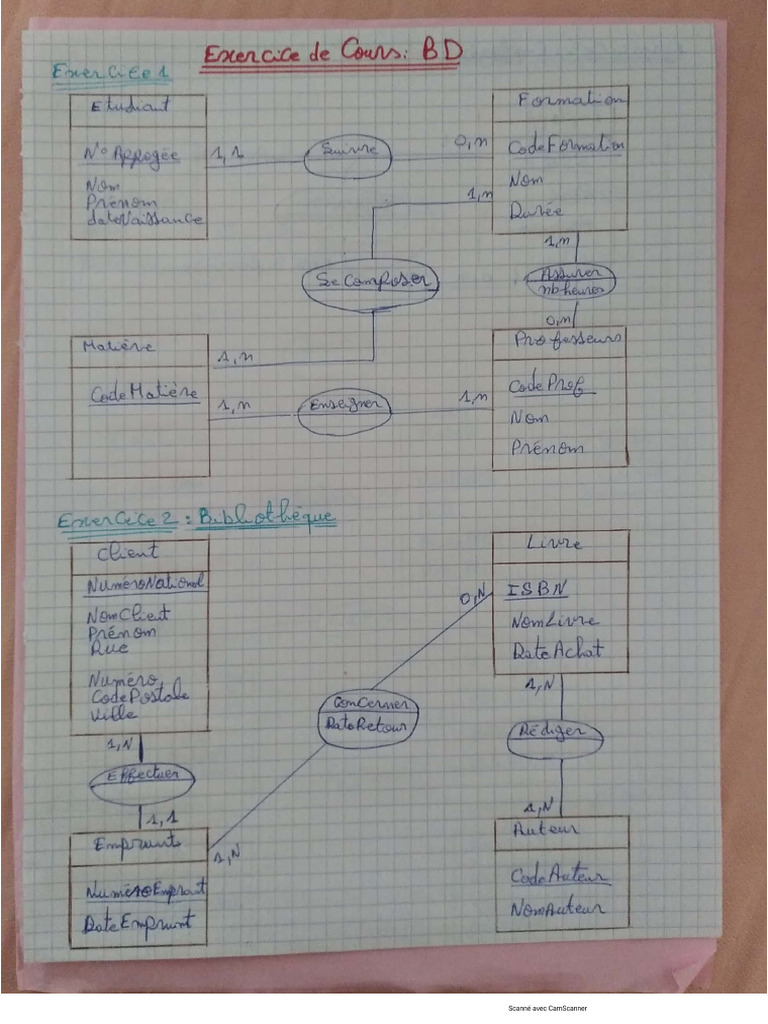 Exercice de Cours: BD
Exercice 1
Etudiant
N° Appogée
Nom
Prénom
dateNaissance
1,1
Suivre
0,n
Formation
CodeFormation
Nom
Durée
1,n
1,n
Se Composer
Assurer
nbheures
0,n
Matière
CodeMatière
1,n
1,n
Enseigner
1,n
Professeurs
CodeProf
Nom
Prénom
Exercice 2 : Bibliothèque
Client
NuméroNational
NomClient
Prénom
Rue
Numéro
CodePostale
Ville
1,N
Effectuer
1,1
Emprunts
NuméroEmprunt
DateEmprunt
1,N
Concerner
DateRetour
0,N
Livre
ISBN
NomLivre
DateAchat
1,N
Rédiger
1,N
Auteur
CodeAuteur
NomAuteur
Scanné avec CamScanner